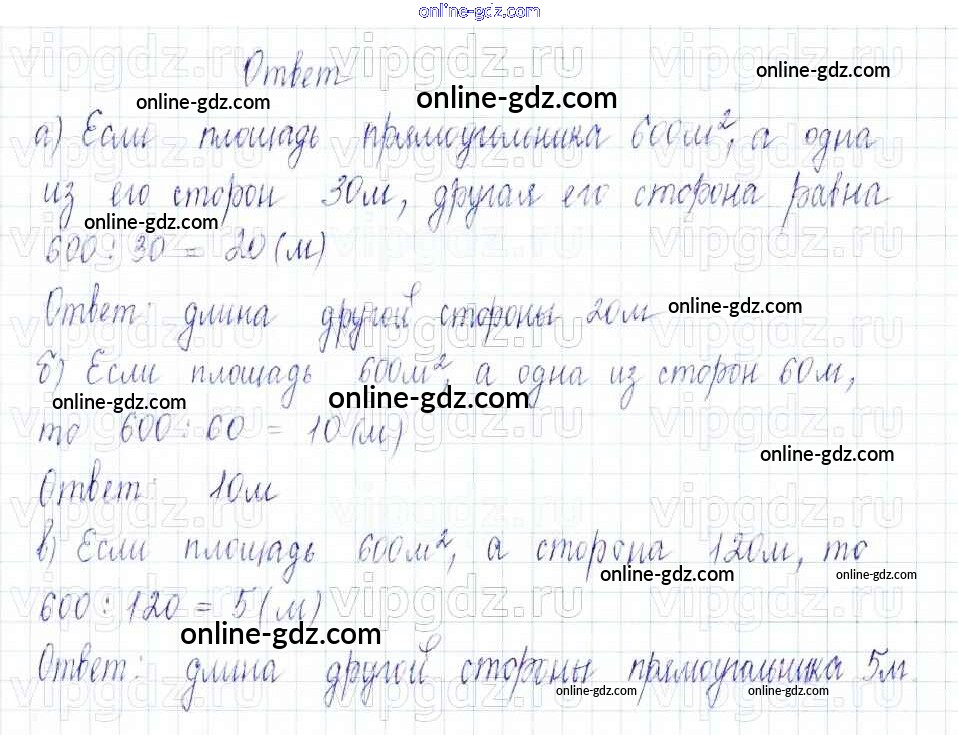 online-gdz.com
Ответ
online-gdz.com
online-gdz.com
online-gdz.com
а) Если площадь прямоугольника 600м², а одна
из его сторон 30м, другая его сторона равна
online-gdz.com
600 : 30 = 20 (м)
Ответ: длина другой стороны 20м
online-gdz.com
б) Если площадь 600м², а одна из сторон 60м,
online-gdz.com
online-gdz.com
то 600 : 60 = 10 (м)
online-gdz.com
Ответ: 10м
в) Если площадь 600м², а сторона 120м, то
online-gdz.com
online-gdz.com
600 : 120 = 5 (м)
online-gdz.com
Ответ: длина другой стороны прямоугольника 5м.
online-gdz.com
online-gdz.com
vipgdz.ru